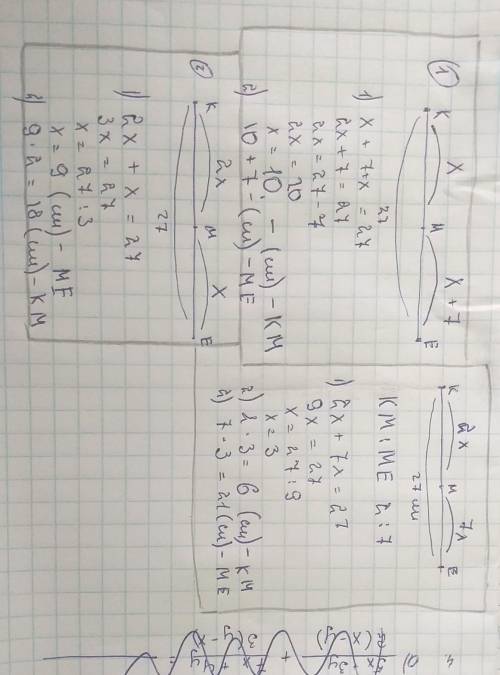 1
K M E
x x + 7
27
1) x + 7 + x = 27
2x + 7 = 27
2x = 27 - 7
2x = 20
x = 10, - (см) - КМ
2) 10 + 7 - (см) - МЕ
2
K M E
2x x
27
1) 2x + x = 27
3x = 27
x = 27 : 3
x = 9 (см) - МЕ
2) 9 · 2 = 18 (см) - КМ
K M E
2x 7x
27 см
КМ : МЕ 2 : 7
1) 2x + 7x = 27
9x = 27
x = 27 : 9
x = 3
2) 2 · 3 = 6 (см) - КМ
2) 7 · 3 = 21 (см) - МЕ